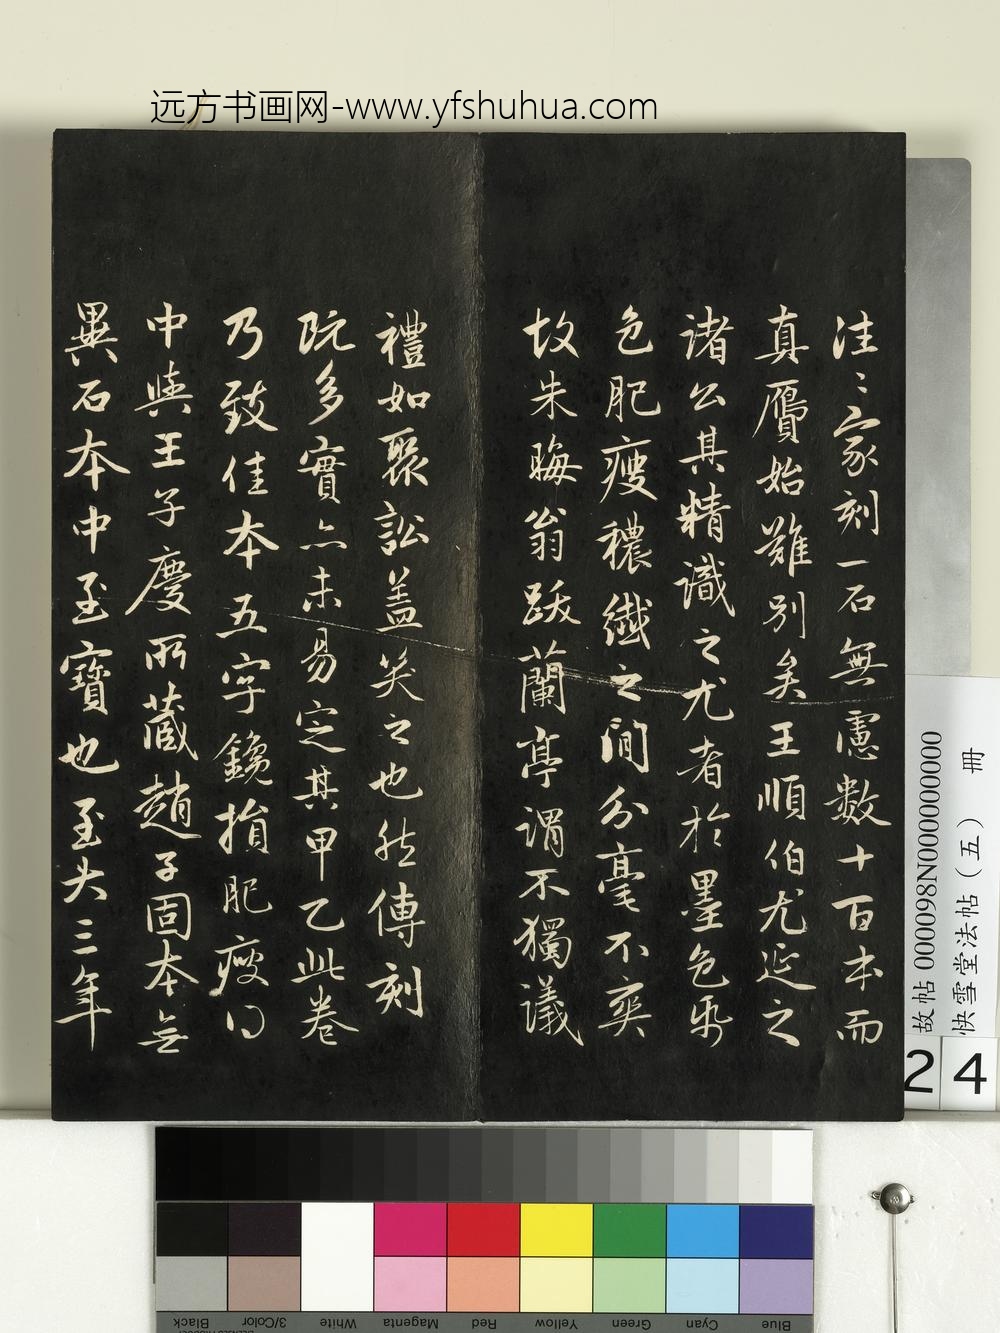 远方书画网-www.yfshuhua.com
往々家刻一石無慮數十百本而
真贋始難別矣王順伯尤延之
諸公其精識之尤者於墨色紙
色肥瘦穠纖之間分毫不爽
故朱晦翁跋蘭亭謂不獨議
禮如聚訟蓋笑之也然傳刻
既多實亦未易定其甲乙此卷
乃致佳本五字鑱損肥瘦得
中與王子慶所藏趙子固本無
異石本中至寶也至大三年
故帖 000098N000000000
快雪堂法帖(五) 冊
2 4
Black 3/Color White Magenta Red Yellow Green Cyan Blue